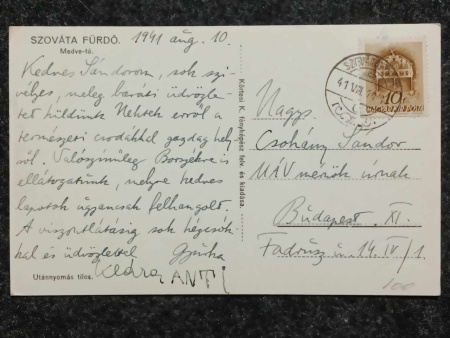 SZOVÁTA FÜRDŐ. 1941 aug. 10.
Medve-tó.
Kedves Sándorom, sok szi-
vélyes, meleg baráti üdvözle-
tet küldünk Nektek erről a
természeti csodákkal gazdag hely-
ről. Valószinüleg Borszékre is
ellátogatunk, melyre kedves
lapotok ugyancsak felhangolt.
A viszontlátásig sok kézcsók-
kal és üdvözlettel Gyurka
Klára ANTI
Utánnyomás tilos.
Körtesi K. fényképész felv. és kiadása.
SZOVÁTA
41 VIII. 10
10 f
MAGYAR KIR. POSTA
Nagys.
Csohány Sándor
MÁV mérnök úrnak
Budapest. XI.
Fadrusz u. 14. IV/1
100